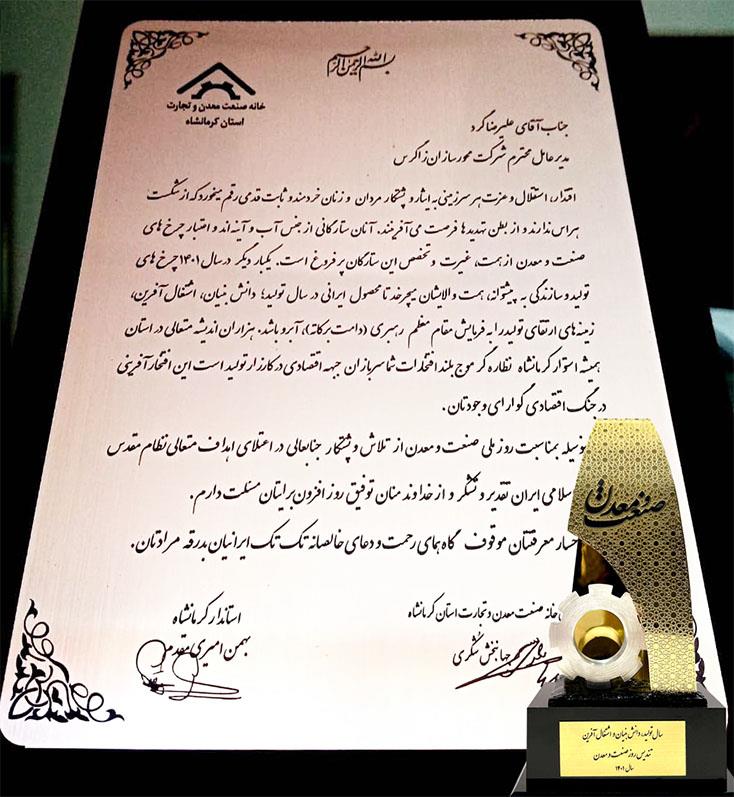 بسم الله الرحمن الرحیم
خانه صنعت معدن و تجارت
استان کرمانشاه
جناب آقای علیرضا گرد
مدیر عامل محترم شرکت محورسازان زاگرس
اقتدار، استقلال و عزت هر سرزمینی به ایثار و پشتکار مردان و زنان خردمند و ثابت قدمی رقم میخورد که از شکست
هراس ندارند و از بطن تهدیدها فرصت می آفرینند. آنان ستارگانی از جنس آب و آینه اند و اعتبار چرخ های
صنعت و معدن از همت، غیرت و تخصص این ستارگان پر فروغ است. یکبار دیگر در سال ۱۴۰۱ چرخ های
تولید و سازندگی به پیشتوانه، همت والایشان میچرخد تا محصول ایرانی در سال تولید؛ دانش بنیان، اشتغال آفرین،
زمینه های ارتقای تولید را به فرمایش مقام معظم رهبری (دامت برکاته)، آبرو باشد. هزاران اندیشه متعالی در استان
همیشه استوار کرمانشاه نظاره گر موج بلند افتخارات شما سربازان جبهه اقتصادی در کارزار تولید است این افتخار آفرینی
در جنگ اقتصادی گوارای وجودتان.
بمناسبت روز ملی صنعت و معدن از تلاش و پشتکار جنابعالی در اعتلای اهداف متعالی نظام مقدس
ایران تقدیر و تشکر و از خداوند منان توفیق روز افزون برایتان مسئلت دارم.
معرفتتان موقوف گاه همای رحمت و دعای خالصانه تک تک ایرانیان بدرقه مرادتان.
خانه صنعت معدن و تجارت استان کرمانشاه
جهانبخش شکری
استاندار کرمانشاه
بهمن امیری مقدم
روز صنعت و معدن
سال تولید، دانش بنیان و اشتغال آفرین
تندیس روز صنعت و معدن
سال ۱۴۰۱